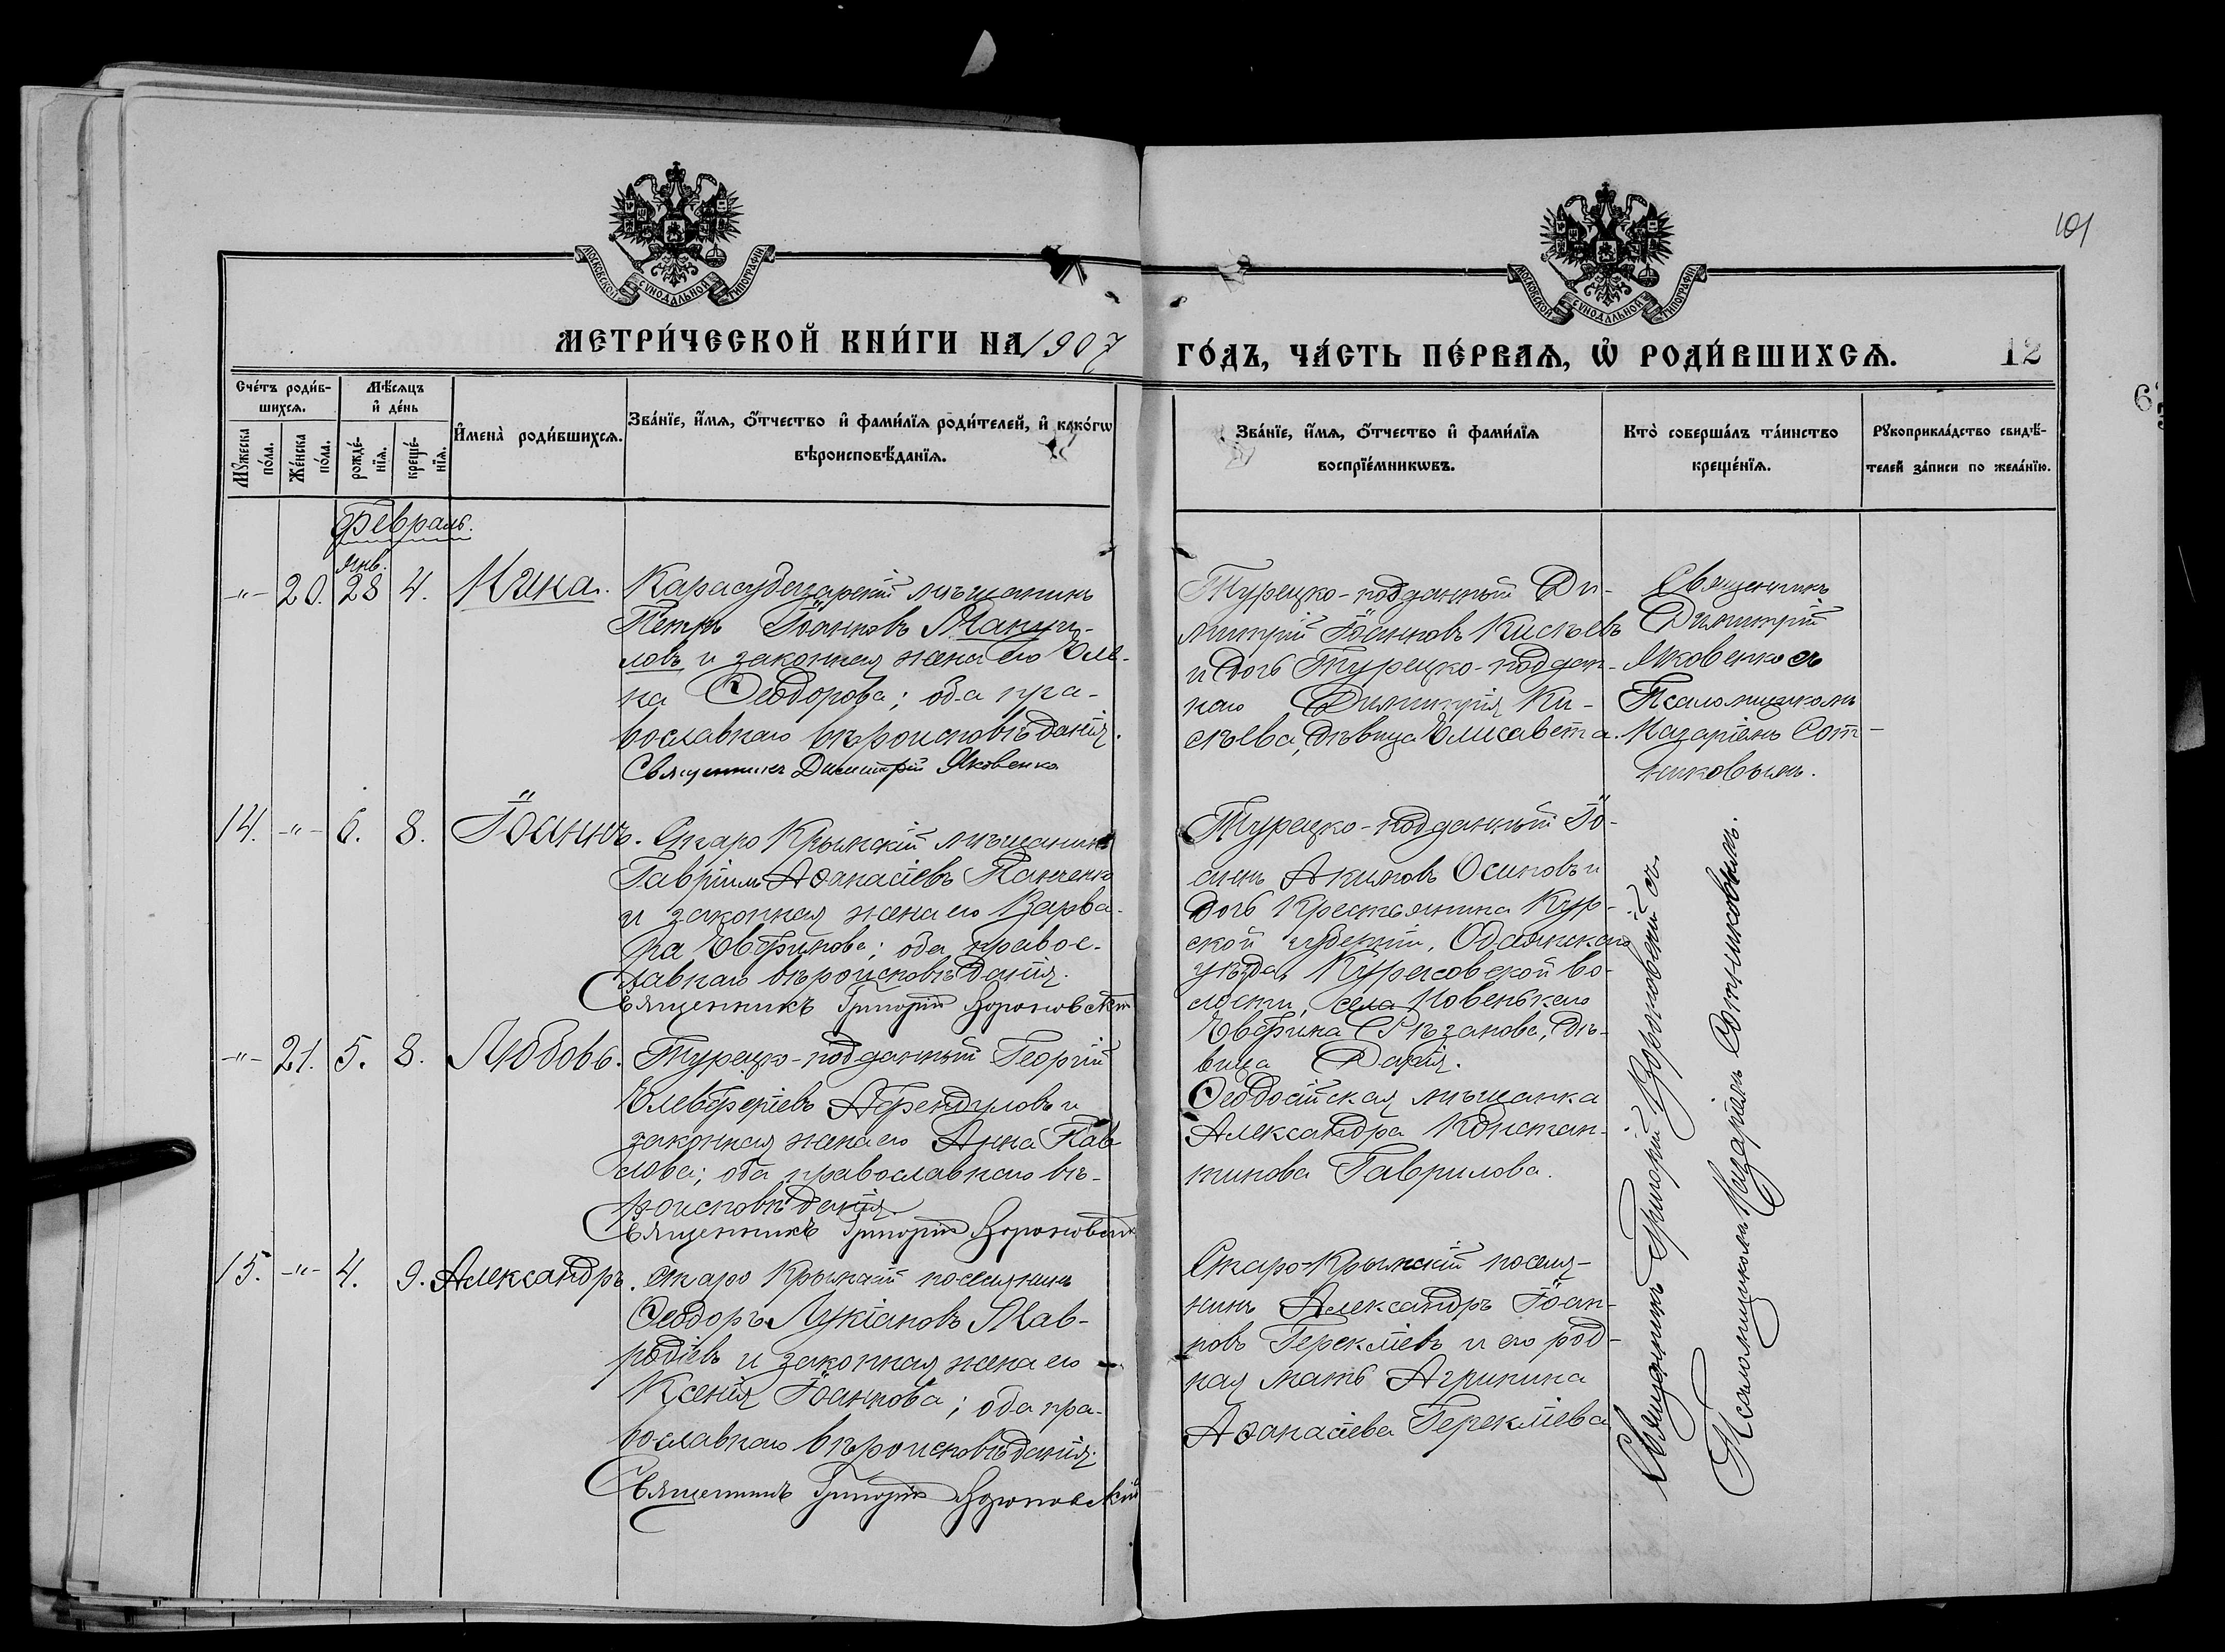 101
МОСКОВСКОЙ СѴНОДАЛЬНОЙ ТИПОГРАФІИ
МОСКОВСКОЙ СѴНОДАЛЬНОЙ ТИПОГРАФІИ
МЕТРИ́ЧЕСКОЙ КНИ́ГИ НА 1907
ГО́ДЪ, ЧА́СТЬ ПЕ́РВАѦ, Ѡ҆ РОДИ́ВШИХСѦ. 12
6
Сче́тъ роди́в-
шихсѧ.
Мѣ́сѧцъ
и҆ де́нь
Мꙋ́жеска
по́ла.
Же́нска
по́ла.
рожде́-
нїѧ.
креще́-
нїѧ.
И҆мена̀ роди́вшихсѧ.
Зва́нїе, и҆́мѧ, ѻ҆́тчество и҆ фами́лїѧ роди́телей, и҆ како́гѡ
вѣроисповѣ́данїѧ.
Зва́нїе, и҆́мѧ, ѻ҆́тчество и҆ фами́лїѧ
воспрїе́мникѡвъ.
Кто̀ соверша́лъ та́инство
креще́нїѧ.
Рꙋкоприкла́дство свидѣ́-
телей за́писи по жела́нїю.
Февраль.
Янв.
-"- 20. 28 4. Нина. Карасубазарскій мѣщанинъ
Петръ Іоанновъ Мануи-
ловъ и законная жена его Еле-
на Ѳеодорова; оба пра-
вославнаго вѣроисповѣданія.
Священникъ Димитрій Яковенко
Турецко-подданный Ди-
митрій Іоанновъ Кисѣевъ
и дочь Турецко-поддан-
наго Димитрія Ки-
сѣева, дѣвица Елисавета.
Священникъ
Димитрій
Яковенко съ
Псаломщикомъ
Назаріемъ Сот-
никовымъ.
14. -"- 6. 8. Іоаннъ. Старо Крымскій мѣщанинъ
Гавріилъ Аѳанасіевъ Панченко
и законная жена его Варва-
ра Евѳимова; оба правос-
лавнаго вѣроисповѣданія.
Священникъ Григорій
Турецко-подданный Іо-
аннъ Акимовъ Осиповъ и
дочь Крестьянина Кур-
ской губерніи, Обоянскаго
уѣзда, волости, села Новенькаго
Евѳима Рѣзанова, дѣ-
вица Дарія.
-"- 21. 5. 8. Любовь. Турецко-подданный Георгій
Елевферіевъ Афендуловъ и
законная жена его Анна Пав-
лова; оба православнаго вѣ-
роисповѣданія.
Священникъ Григорій
Ѳеодосійская мѣщанка
Александра Констан-
тинова Гаврилова.
15. -"- 4. 9. Александръ. Старо Крымскій поселянинъ
Ѳеодоръ Лукіановъ Мав-
родіевъ и законная жена его
Ксенія Іоаннова; оба пра-
вославнаго вѣроисповѣданія.
Священникъ Григорій
Старо-Крымскій поселя-
нинъ Александръ Іоан-
новъ Гереклiевъ и его род-
ная мать Агрипина
Аѳанасіева Гереклiева
Священникъ Григорій съ
Псаломщикомъ Назаріемъ Сотниковымъ.